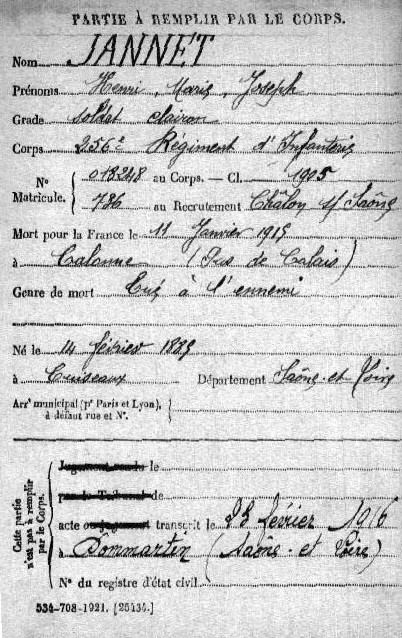 PARTIE À REMPLIR PAR LE CORPS.
Nom JANNET
Prénoms Henri, Marie, Joseph
Grade soldat clairon
Corps 256e Régiment d'Infanterie
N° Matricule. 013248 au Corps. — Cl. 1905
786 au Recrutement Châlon s/ Saône
Mort pour la France le 11 Janvier 1915
à Calonne (Pas de Calais)
Genre de mort Tué à l'ennemi
Né le 14 février
à Cuiseaux Département Saône-et-Loire
Arrt municipal (pr Paris et Lyon), à défaut rue et N°.
Cette partie n'est pas à remplir par le Corps.
Jugement rendu le
par le Tribunal de
acte ou jugement transcrit le 23 février 1916
à Dommartin (Saône-et-Loire)
N° du registre d'état civil
534-708-1921. [26434.]